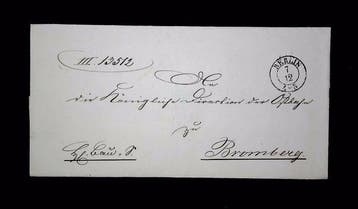 III. 13512
BERLIN
7
12
An
die Königliche Direction der Ostbahn
zu
Bromberg
H. Bau. S.